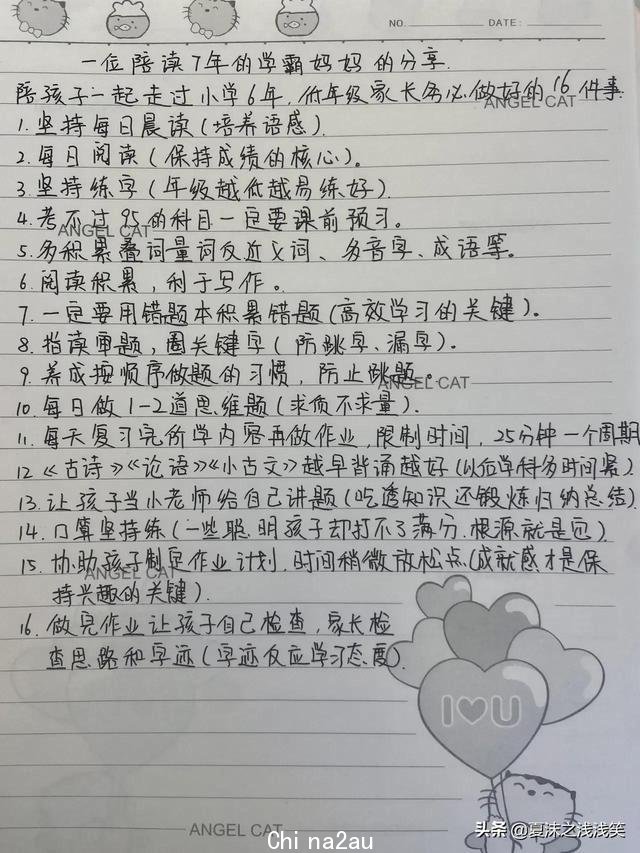 NO. DATE:
一位陪读7年的学霸妈妈的分享.
陪孩子一起走过小学6年,低年级家长务必做好的16件事
ANGEL CAT
1.坚持每日晨读(培养语感).
2.每日阅读(保持成绩的核心)。
3.坚持练字(年级越低越易练好)
4.考不过95的科目一定要课前预习。
ANGEL CAT
5.多积累叠词量词反近义词、多音字、成语等。
6.阅读积累,利于写作。
7.一定要用错题本积累错题(高效学习的关键)。
8.指读审题,圈关键字(防跳字、漏字)。
9.养成按顺序做题的习惯,防止跳题。
ANGEL CAT
10.每日做1-2道思维题(求质不求量).
11.每天复习完所学内容再做作业,限制时间,25分钟一个周期
12《古诗》《论语》《小古文》越早背诵越好(以后学科多时间紧)
13.让孩子当小老师给自己讲题(吃透知识还锻炼归纳总结).
14.口算坚持练(一些聪明孩子却打不了满分,根源就是它)
15.协助孩子制定作业计划,时间稍微放松点.(成就感才是保
ANGEL CAT
持兴趣的关键).
16.做完作业让孩子自己检查,家长检
查思路和字迹(字迹反应学习态度).
I♥U
ANGEL CAT
头条@夏沫之浅浅笑
Chi na2au